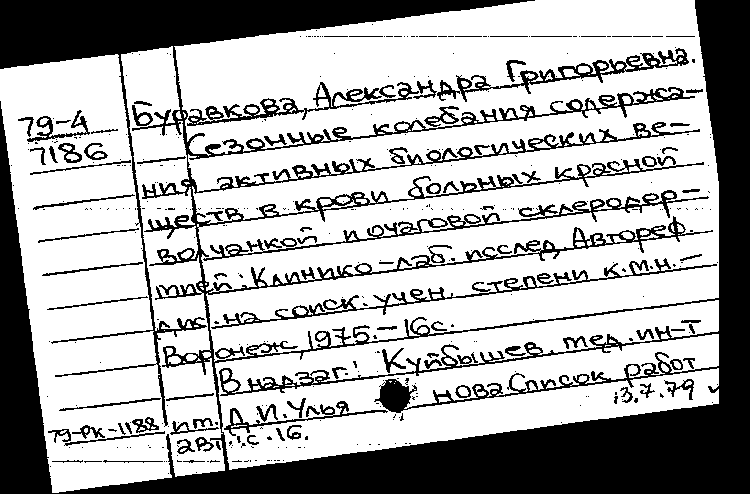 79-4
7186
Буравкова, Александра Григорьевна.
Сезонные колебания содержа-
ния активных биологических ве-
ществ в крови больных красной
волчанкой и очаговой склеродер-
мией: Клинико-лаб. исслед. Автореф.
дис. на соиск. учен. степени к.м.н.-
Воронеж, 1975.-16с.
В надзаг: Куйбышев. мед. ин-т
им. Д.И.Улья нова. Список работ
авт.: с.16.
79-РК-1188
13.7.79